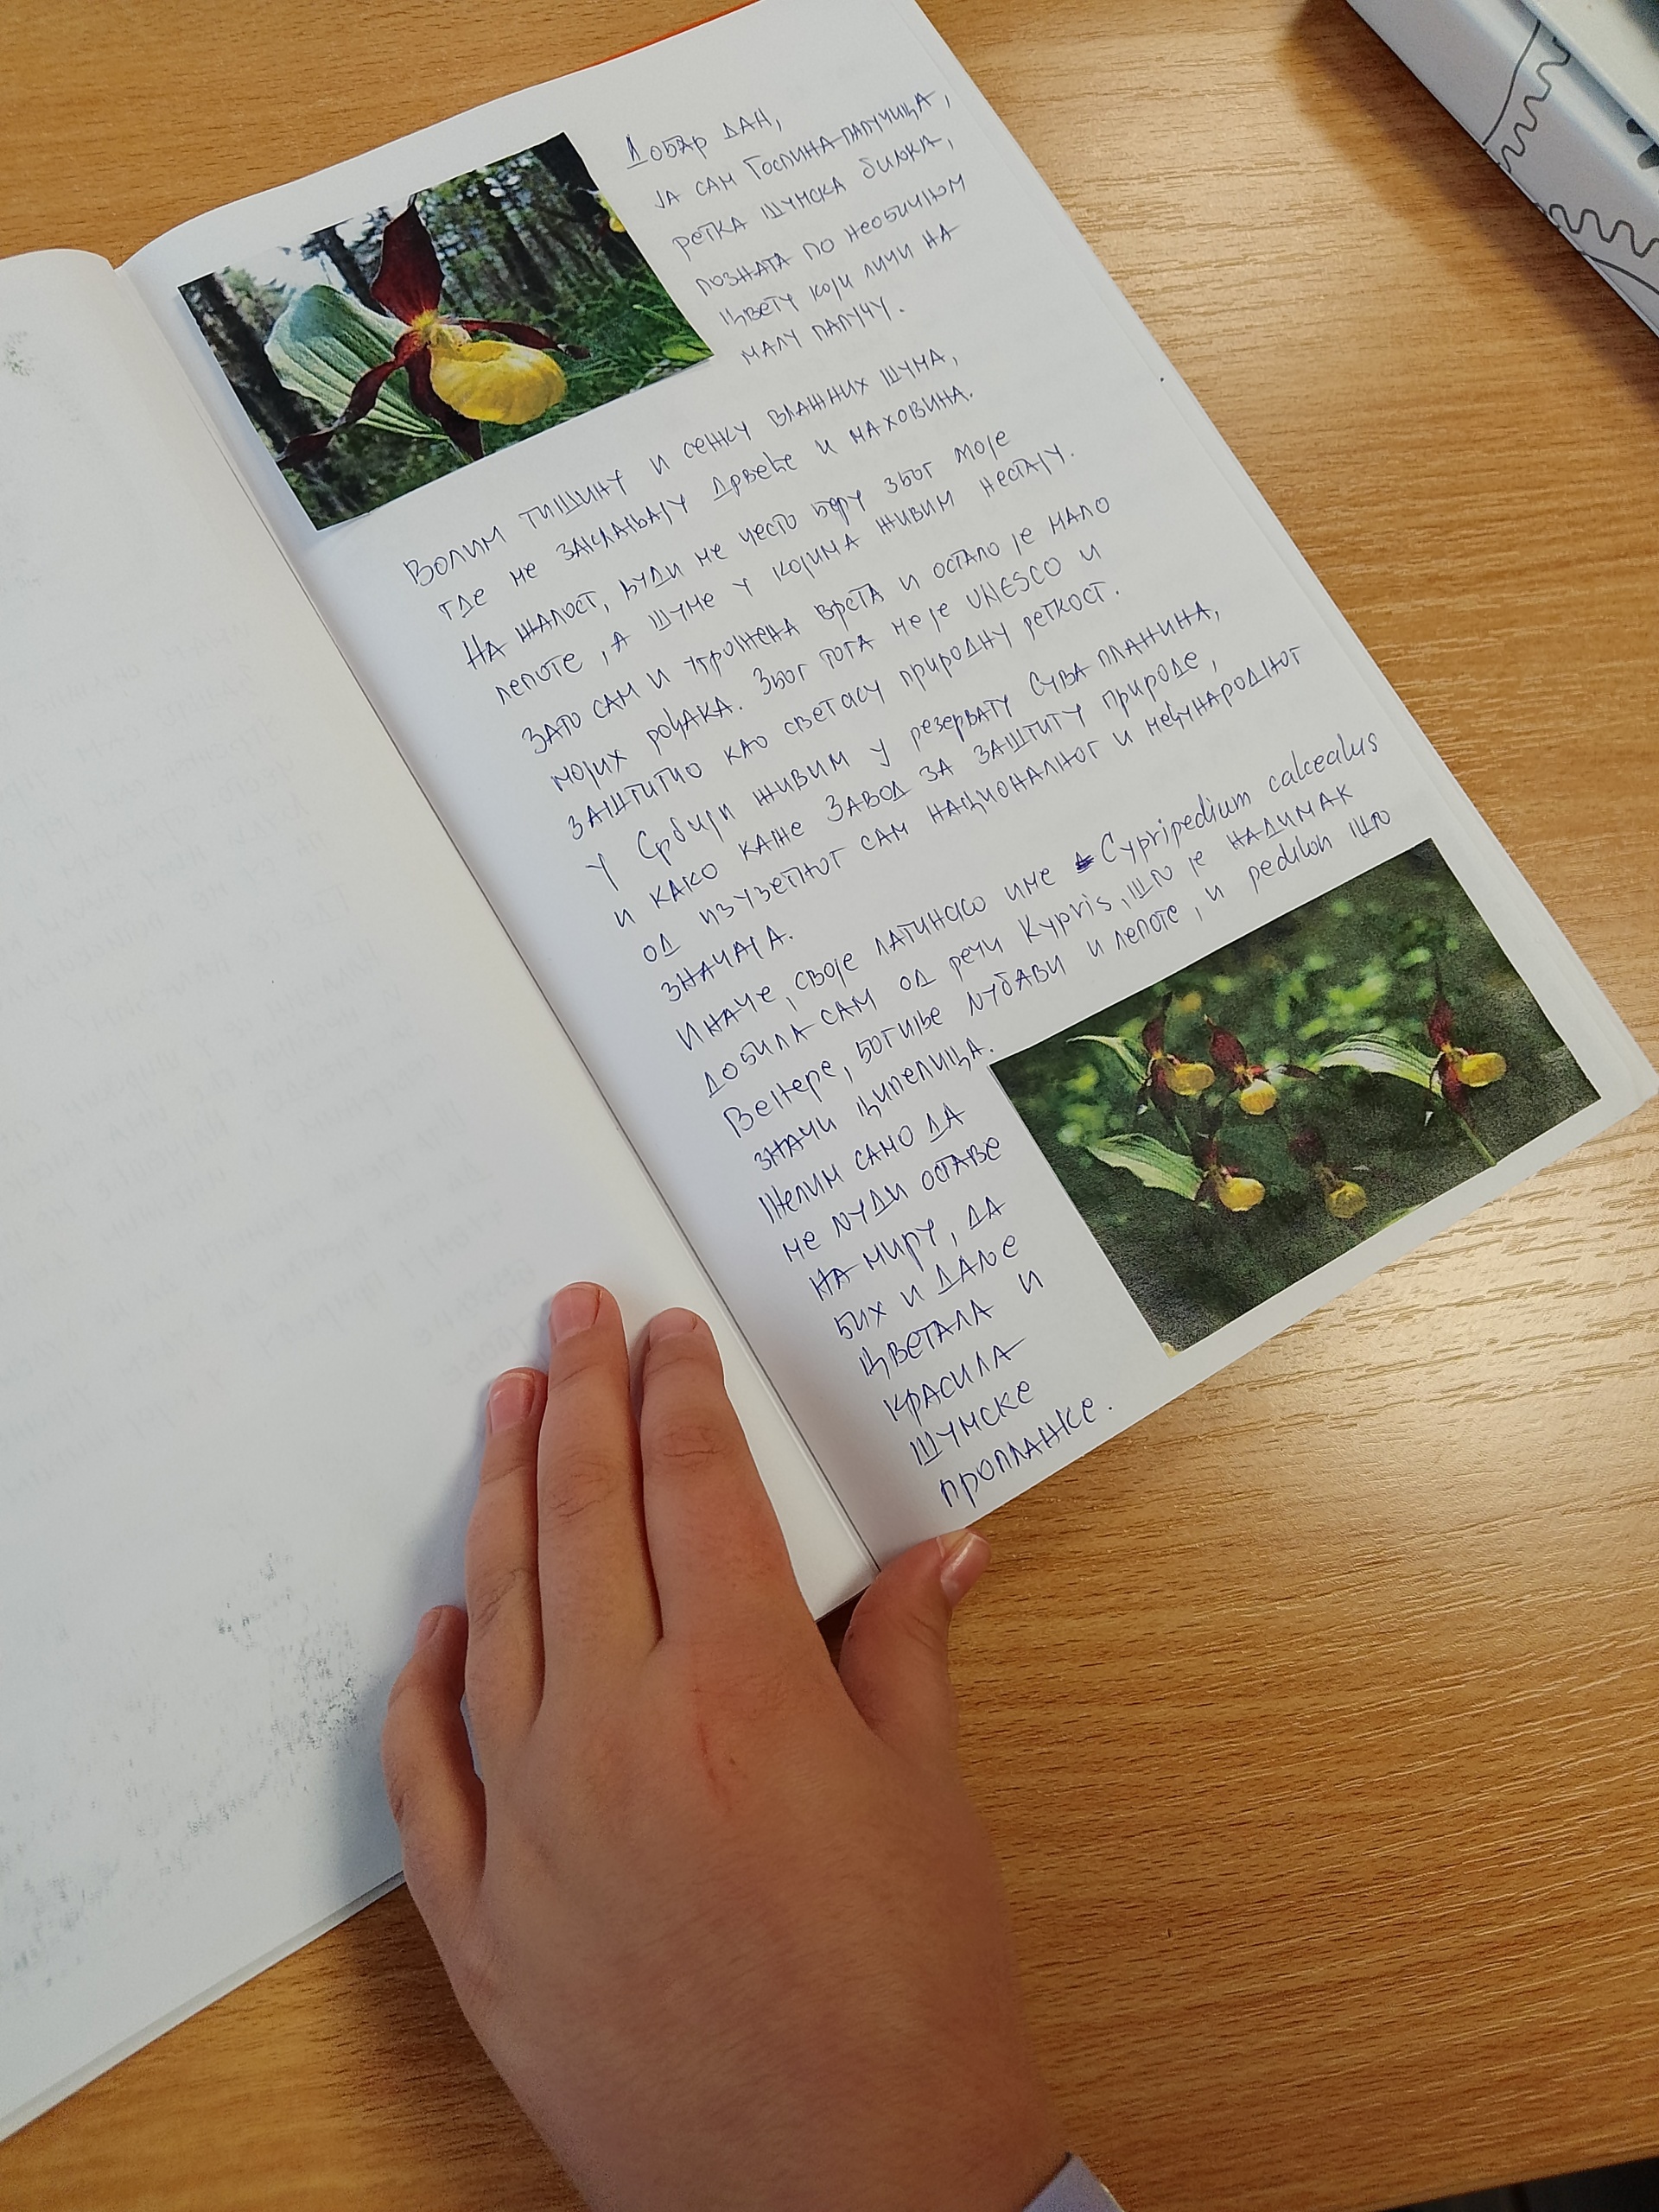 Добар дан,
ја сам Госпина папучица,
ретка шумска биљка,
позната по необичном
цвету који личи на
малу папучу.
Волим тишину и сенку влажних шума,
где ме заклањају дрвеће и маховина.
На жалост, људи ме често беру због моје
лепоте, а шуме у којима живим нестају.
Зато сам и угрожена врста и остало је мало
мојих рођака. Због тога ме је UNESCO и
заштитио као светску природну реткост.
У Србији живим у резервату Сува планина,
и како каже Завод за заштиту природе,
од изузетног сам националног и међународног
значаја.
Иначе, своје латинско име Cypripedium calcealus
добила сам од речи Kypris, што је надимак
Венере, богиње љубави и лепоте, и pedilon што
значи ципелица.
Желим само да
ме људи оставе
на миру, да
бих и даље
цветала и
красила
шумске
пропланке.